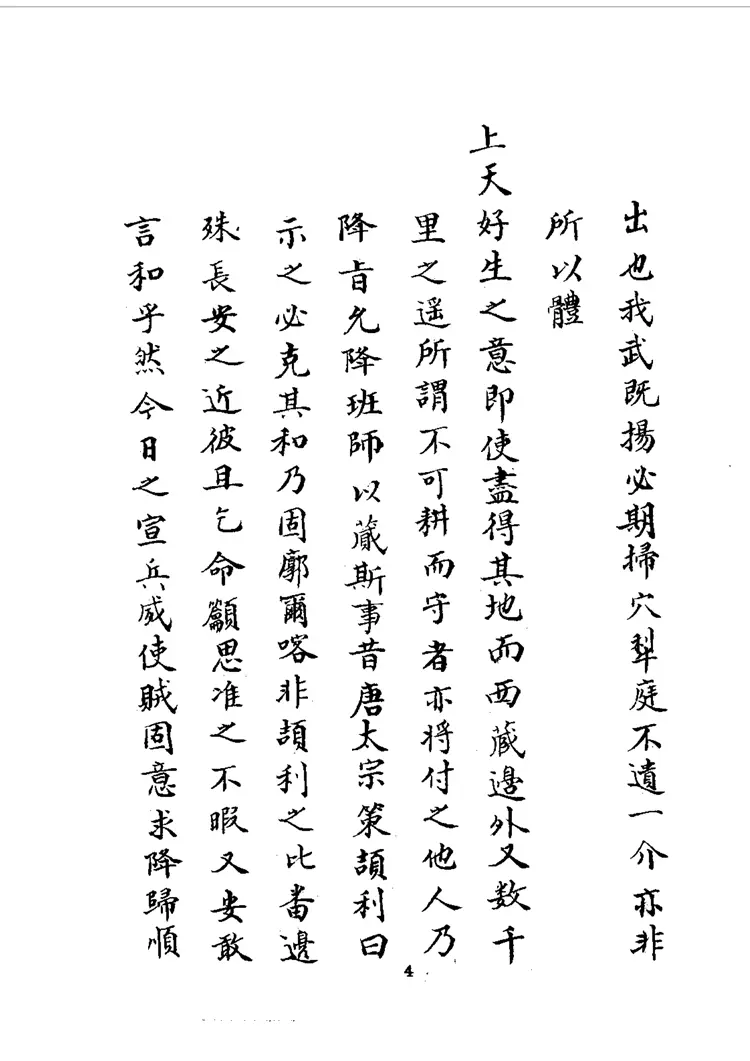 出也我武既揚必期掃穴犂庭不遺一介亦非
所以體
上天好生之意即使盡得其地而西藏邊外又数千
里之遥所謂不可耕而守者亦將付之他人乃
降旨允降班師以蕆斯事昔唐太宗策頡利曰
示之必克其和乃固廓爾喀非頡利之比番邊
殊長安之近彼且乞命籲恩准之不暇又安敢
言和乎然今日之宣兵威使賊固意求降歸順
4